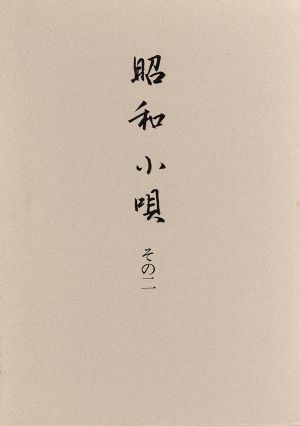 昭和小唄
その二